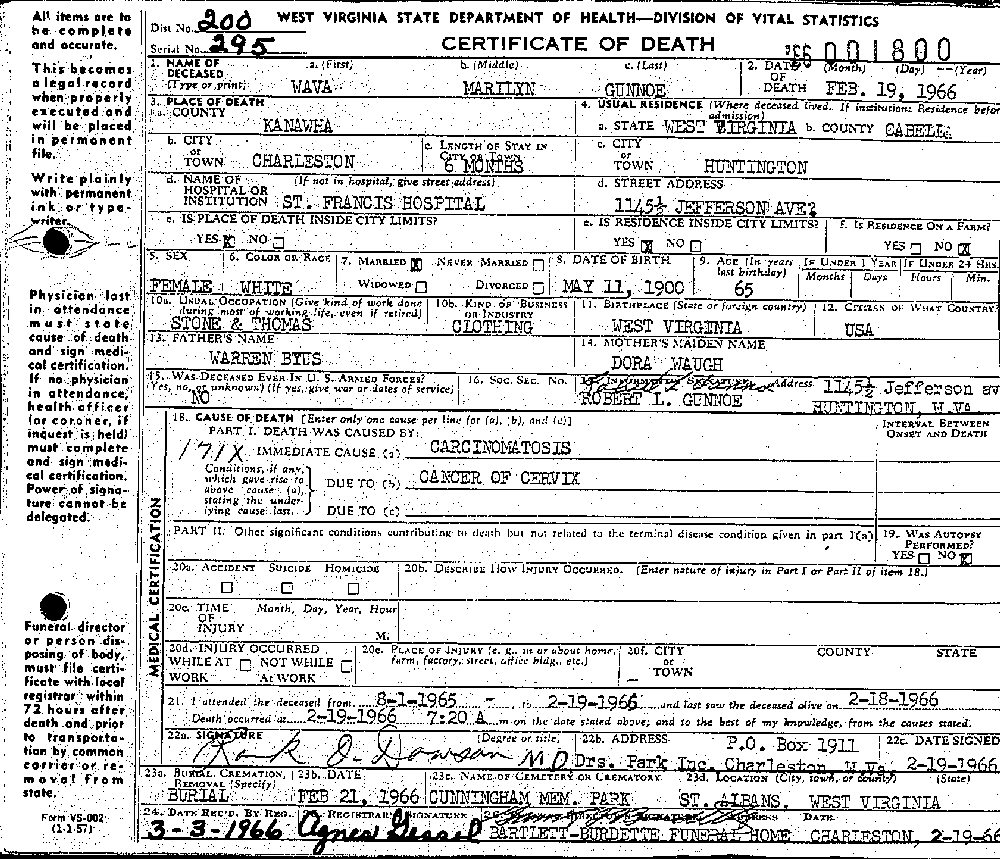 WEST VIRGINIA STATE DEPARTMENT OF HEALTH—DIVISION OF VITAL STATISTICS
Dist No. 200
Serial No. 295
CERTIFICATE OF DEATH
001800
1. NAME OF DECEASED (Type or print) a. (First) b. (Middle) c. (Last) 2. DATE OF DEATH (Month) (Day) (Year)
WAVA MARILYN GUNNOE FEB. 19, 1966
3. PLACE OF DEATH 4. USUAL RESIDENCE (Where deceased lived. If institution: Residence before admission)
a. COUNTY KANAWHA a. STATE WEST VIRGINIA b. COUNTY CABELL
b. CITY or TOWN CHARLESTON c. LENGTH OF STAY IN CITY OR TOWN 6 MONTHS c. CITY or TOWN HUNTINGTON
d. NAME OF HOSPITAL OR INSTITUTION (If not in hospital, give street address) ST. FRANCIS HOSPITAL d. STREET ADDRESS 1145½ JEFFERSON AVE?
e. IS PLACE OF DEATH INSIDE CITY LIMITS? YES X NO e. IS RESIDENCE INSIDE CITY LIMITS? YES X NO f. IS RESIDENCE ON A FARM? YES NO X
5. SEX 6. COLOR OR RACE 7. MARRIED X NEVER MARRIED WIDOWED DIVORCED 8. DATE OF BIRTH 9. AGE (In years last birthday) IF UNDER 1 YEAR Months Days IF UNDER 24 HRS. Hours Min.
FEMALE WHITE MAY 11, 1900 65
10a. USUAL OCCUPATION (Give kind of work done during most of working life, even if retired) 10b. KIND OF BUSINESS OR INDUSTRY 11. BIRTHPLACE (State or foreign country) 12. CITIZEN OF WHAT COUNTRY?
STONE & THOMAS CLOTHING WEST VIRGINIA USA
13. FATHER'S NAME 14. MOTHER'S MAIDEN NAME
WARREN BYUS DORA WAUGH
15. WAS DECEASED EVER IN U. S. ARMED FORCES? (Yes, no, or unknown) (If yes, give war or dates of service) 16. SOC. SEC. NO. Address 1145½ Jefferson av
NO ROBERT L. GUNNOE HUNTINGTON, W.VA
MEDICAL CERTIFICATION
18. CAUSE OF DEATH [Enter only one cause per line for (a), (b), and (c)] INTERVAL BETWEEN ONSET AND DEATH
PART I. DEATH WAS CAUSED BY:
171X IMMEDIATE CAUSE (a) CARCINOMATOSIS
Conditions, if any, which gave rise to above cause (a), stating the underlying cause last. DUE TO (b) CANCER OF CERVIX
DUE TO (c)
PART II. Other significant conditions contributing to death but not related to the terminal disease condition given in part I(a) 19. WAS AUTOPSY PERFORMED? YES NO X
20a. ACCIDENT SUICIDE HOMICIDE 20b. DESCRIBE HOW INJURY OCCURRED. (Enter nature of injury in Part I or Part II of item 18.)
20c. TIME OF INJURY Month, Day, Year, Hour M.
20d. INJURY OCCURRED WHILE AT WORK NOT WHILE AT WORK 20e. PLACE OF INJURY (e. g., in or about home, farm, factory, street, office bldg., etc.) 20f. CITY or TOWN COUNTY STATE
21. I attended the deceased from 8-1-1965 - to 2-19-1966 and last saw the deceased alive on 2-18-1966
Death occurred at 2-19-1966 7:20 A m on the date stated above; and to the best of my knowledge, from the causes stated.
22a. SIGNATURE (Degree or title) 22b. ADDRESS P.O. Box 1911 22c. DATE SIGNED
Dawson M D Drs. Park Inc. Charleston W.Va. 2-19-1966
23a. BURIAL, CREMATION, REMOVAL (Specify) 23b. DATE 23c. NAME OF CEMETERY OR CREMATORY 23d. LOCATION (City, town, or county) (State)
BURIAL FEB 21, 1966 CUNNINGHAM MEM. PARK ST. ALBANS, WEST VIRGINIA
24. DATE REC'D. BY REG. REGISTRAR'S SIGNATURE ADDRESS DATE
3-3-1966 Agnes BARTLETT-BURDETTE FUNERAL HOME CHARLESTON, 2-19-66
All items are to
be complete
and accurate.
This becomes
a legal record
when properly
executed and
will be placed
in permanent
file.
Write plainly
with permanent
ink or type-
writer.
Physician last
in attendance
must state
cause of death
and sign medi-
cal certification.
If no physician
in attendance,
health officer
(or coroner, if
inquest is held)
must complete
and sign medi-
cal certification.
Power of signa-
ture cannot be
delegated.
Funeral director
or person dis-
posing of body,
must file certi-
ficate with local
registrar within
72 hours after
death and prior
to transporta-
tion by common
carrier or re-
moval from
state.
Form VS-002
(1-1-57)